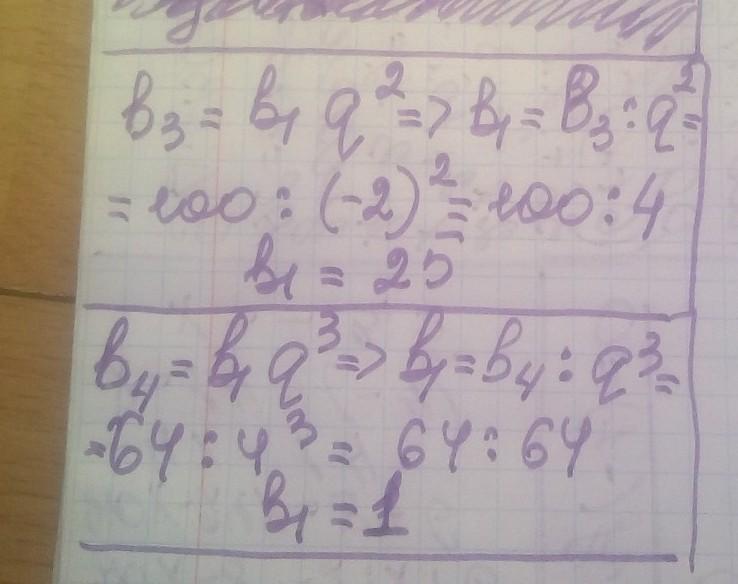 b₃ = b₁ q² => b₁ = B₃ : q² =
= 100 : (-2)² = 100 : 4
b₁ = 25
b₄ = b₁ q³ => b₁ = b₄ : q³ =
= 64 : 4³ = 64 : 64
b₁ = 1